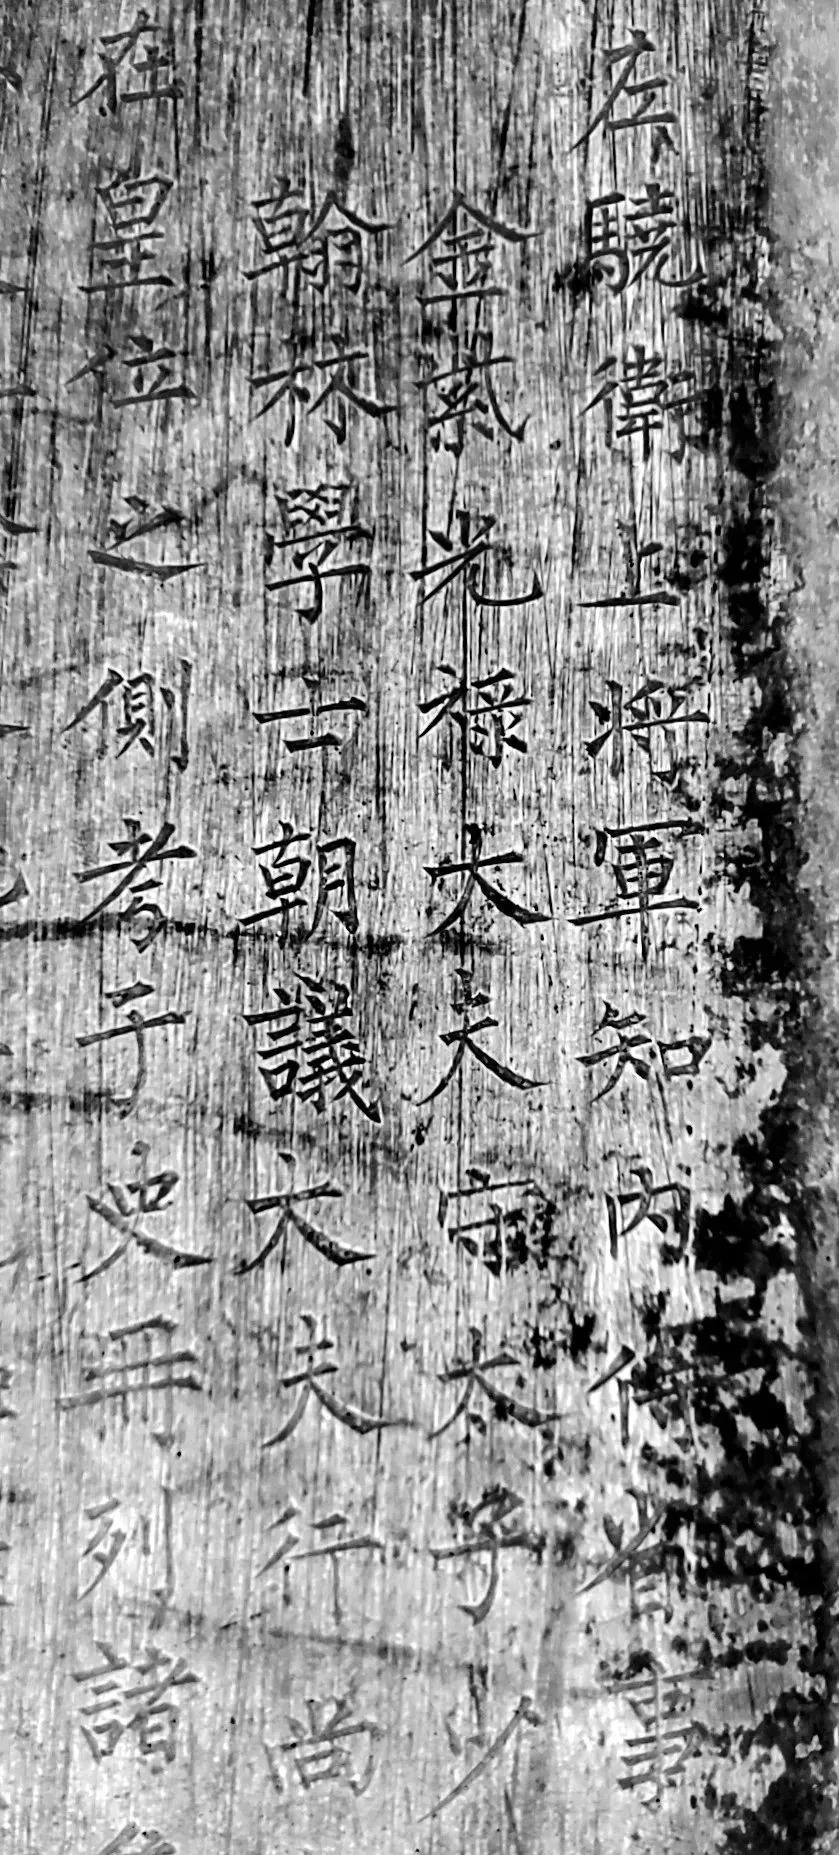 左驍衛上將軍知內侍省事
金紫光祿大夫守太子少
翰林學士朝議大夫行尚
在皇位之側考子史冊列諸